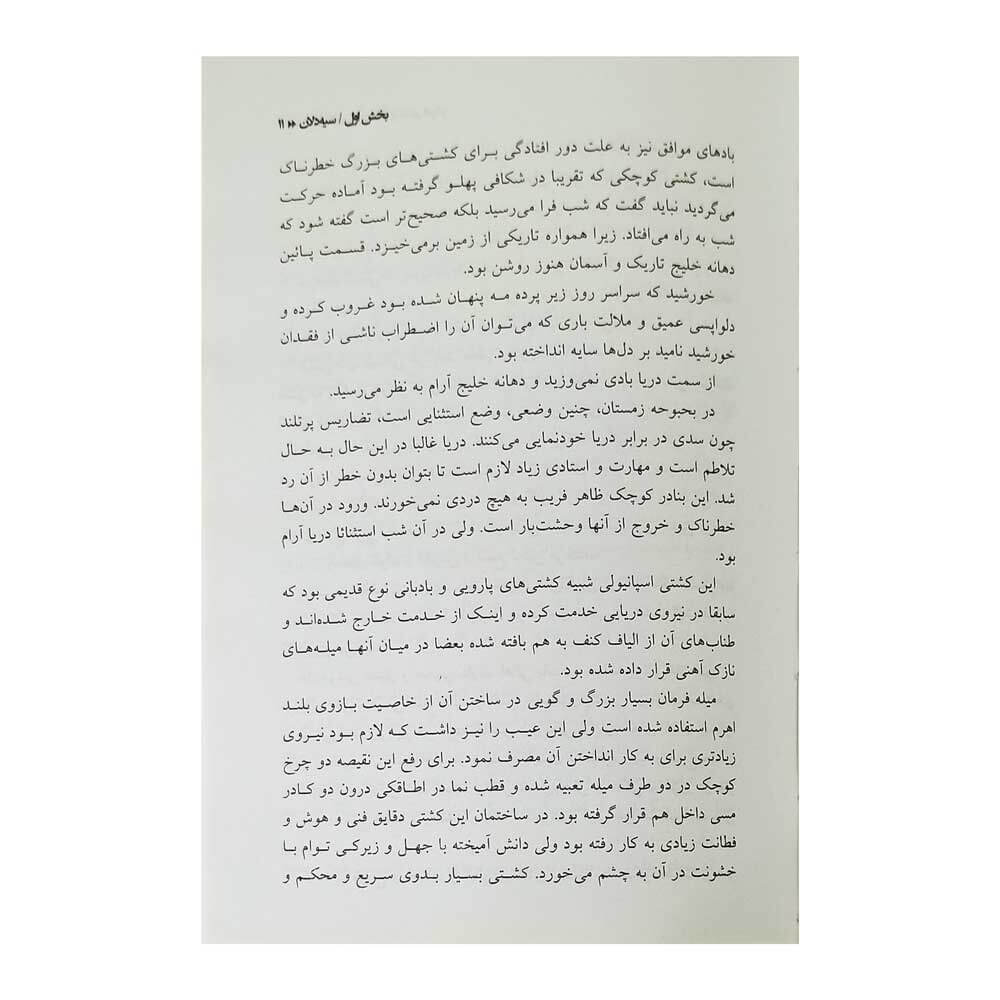 بخش اول / سیه‌دلان » ۱۱
بادهای موافق نیز به علت دور افتادگی برای کشتی‌های بزرگ خطرناک
است، کشتی کوچکی که تقریبا در شکافی پهلو گرفته بود آماده حرکت
می‌گردید نباید گفت که شب فرا می‌رسید بلکه صحیح‌تر است گفته شود که
شب به راه می‌افتاد. زیرا همواره تاریکی از زمین برمی‌خیزد. قسمت پائین
دهانه خلیج تاریک و آسمان هنوز روشن بود.
خورشید که سراسر روز زیر پرده مه پنهان شده بود غروب کرده و
دلواپسی عمیق و ملالت باری که می‌توان آن را اضطراب ناشی از فقدان
خورشید نامید بر دل‌ها سایه انداخته بود.
از سمت دریا بادی نمی‌وزید و دهانه خلیج آرام به نظر می‌رسید.
در بحبوحه زمستان، چنین وضعی، وضع استثنایی است، تضاریس پرتلند
چون سدی در برابر دریا خودنمایی می‌کنند. دریا غالبا در این حال به حال
تلاطم است و مهارت و استادی زیاد لازم است تا بتوان بدون خطر از آن رد
شد. این بنادر کوچک ظاهر فریب به هیچ دردی نمی‌خورند. ورود در آن‌ها
خطرناک و خروج از آنها وحشت‌بار است. ولی در آن شب استثنائا دریا آرام
بود.
این کشتی اسپانیولی شبیه کشتی‌های پارویی و بادبانی نوع قدیمی بود که
سابقا در نیروی دریایی خدمت کرده و اینک از خدمت خارج شده‌اند و
طناب‌های آن از الیاف کنف به هم بافته شده بعضا در میان آنها میله‌های
نازک آهنی قرار داده شده بود.
میله فرمان بسیار بزرگ و گویی در ساختن آن از خاصیت بازوی بلند
اهرم استفاده شده است ولی این عیب را نیز داشت که لازم بود نیروی
زیادتری برای به کار انداختن آن مصرف نمود. برای رفع این نقیصه دو چرخ
کوچک در دو طرف میله تعبیه شده و قطب نما در اطاقکی درون دو کادر
مسی داخل هم قرار گرفته بود. در ساختمان این کشتی دقایق فنی و هوش و
فطانت زیادی به کار رفته بود ولی دانش آمیخته با جهل و زیرکی توام با
خشونت در آن به چشم می‌خورد. کشتی بسیار بدوی سریع و محکم و